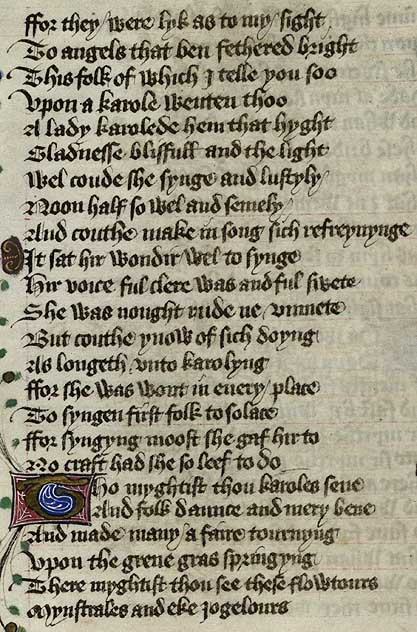 ffor they were lyk as to my sight
To angels that ben fethered bright
This folk of which I telle you soo
Vpon a karole wenten thoo
A lady karolede hem that hyght
Gladnesse blisfull and the light
Wel coude she synge and lustyly
Noon half so wel and semely
And couthe make in song sich refreynynge
It sat hir wondir wel to synge
Hir voice ful clere was and ful swete
She was nought rude ne vnmete
But couthe ynow of sich doyng
As longeth vnto karolyng
ffor she was wont in euery place
To syngen first folk to solace
ffor syngyng moost she gaf hir to
No craft had she so leef to do
Tho myghtist thou karoles sene
And folk daunce and mery bene
And made many a faire tournyng
Vpon the grene gras springyng
There myghtist thou see these flowtours
Mynstrales and eke Jogelours